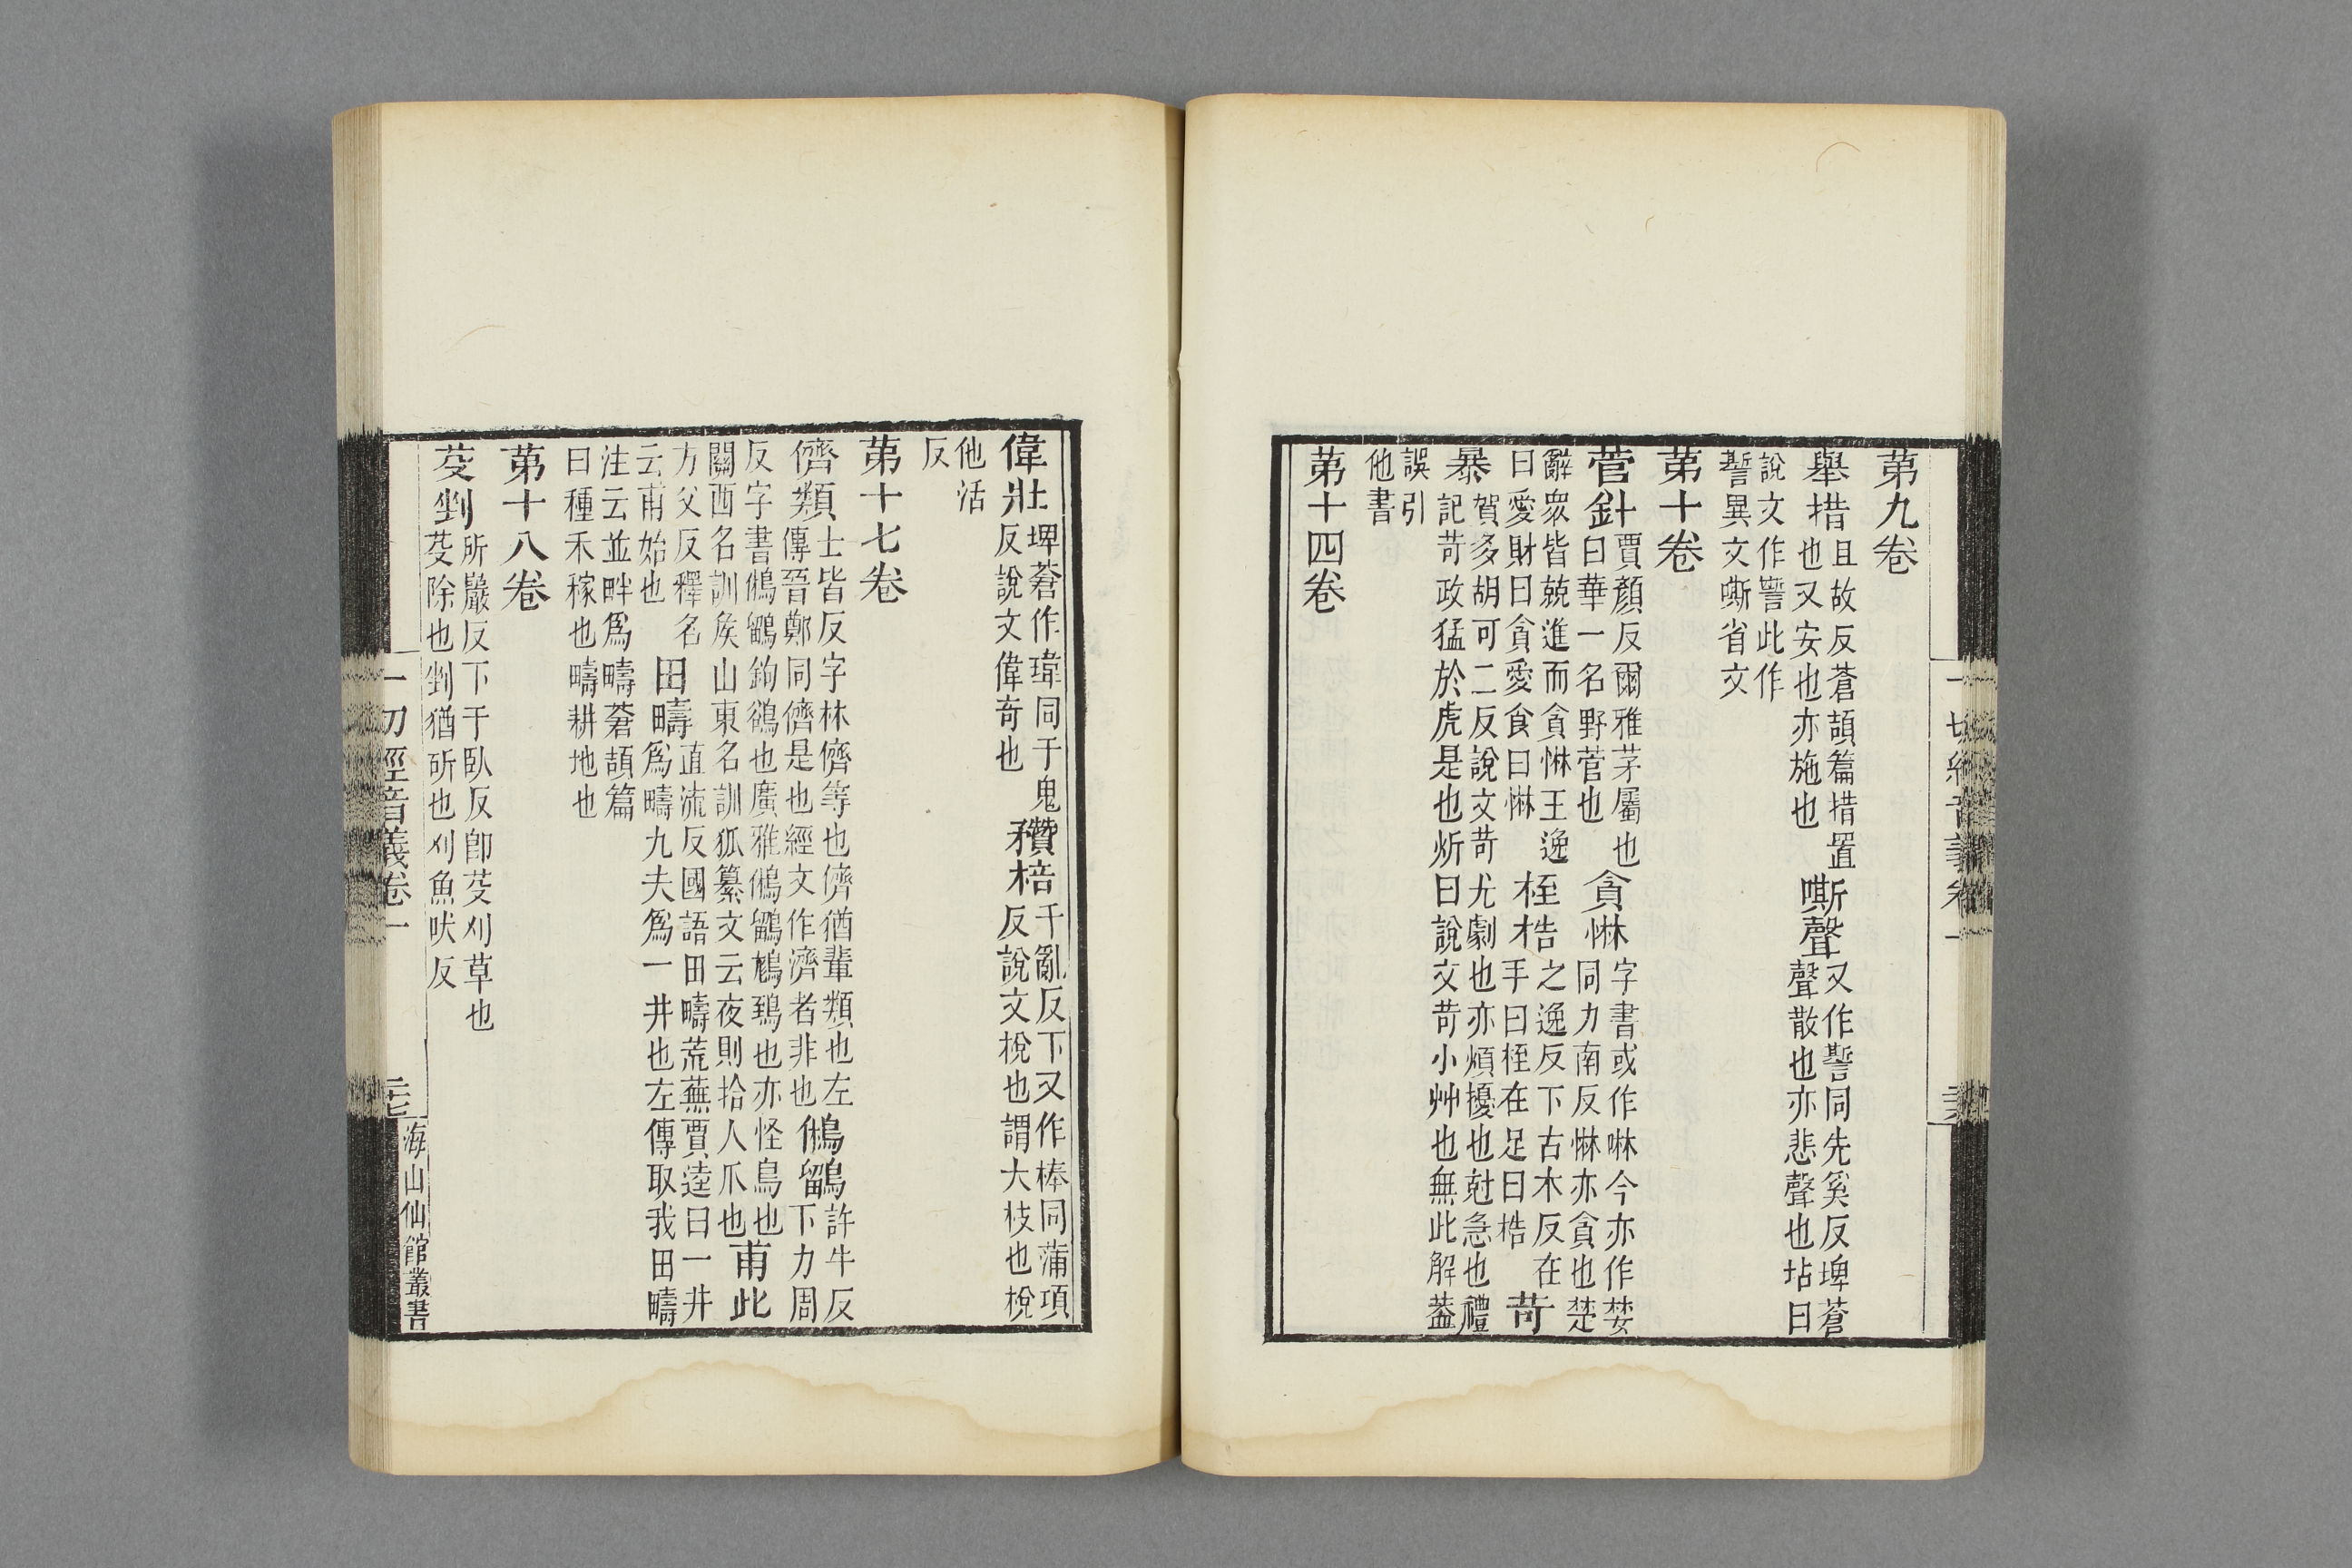 第九卷
舉措且故反蒼頡篇措置
也又安也亦施也
嘶聲又作誓同先奚反埤蒼
聲散也亦悲聲也坫曰
說文作謺此作
誓異文嘶省文
第十卷
菅針賈顏反爾雅茅屬也
曰華一名野菅也
貪惏字書或作啉今亦作婪
同力南反惏亦貪也楚
辭衆皆兢進而貪惏王逸
曰愛財曰貪愛食曰惏
桎梏之逸反下古木反在
手曰桎在足曰梏
苛
暴賀多胡可二反說文苛尤劇也亦煩擾也尅急也禮
記苛政猛於虎是也炘曰說文苛小艸也無此解葢
誤引
他書
第十四卷
偉壯埤蒼作瑋同于鬼
反說文偉奇也
欑棓千亂反下又作棒同蒲項
反說文棁也謂大枝也棁
他活
反
第十七卷
儕類士皆反字林儕等也儕猶輩類也左
傳晉鄭同儕是也經文作濟者非也
鵂鶹許牛反
下力周
反字書鵂鶹鉤鵅也廣雅鵂鶹鵋鵄也亦怪鳥也
關西名訓侯山東名訓狐纂文云夜則拾人爪也
甫此
方父反釋名
云甫始也
田疇直流反國語田疇荒蕪賈逵曰一井
爲疇九夫爲一井也左傳取我田疇
注云並畔爲疇蒼頡篇
曰種禾稼也疇耕地也
第十八卷
芟剉所巖反下千臥反卽芟刈草也
芟除也剉猶斫也刈魚吠反
一切經音義卷一
海山仙館叢書